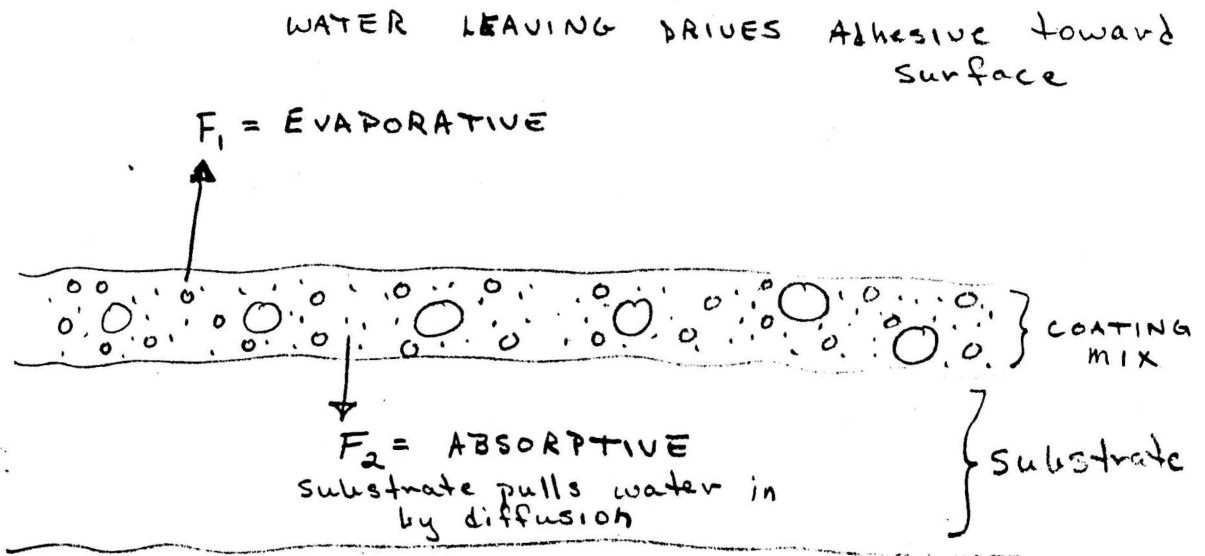 WATER LEAVING DRIVES Adhesive toward
surface
F₁ = EVAPORATIVE
COATING
MIX
F₂ = ABSORPTIVE
substrate pulls water in
by diffusion
Substrate